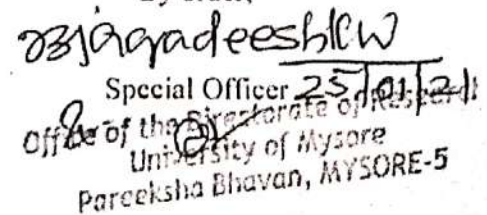 Special Officer 25/01/21
Office of the Directorate of Research
University of Mysore
Pareeksha Bhavan, MYSORE-5